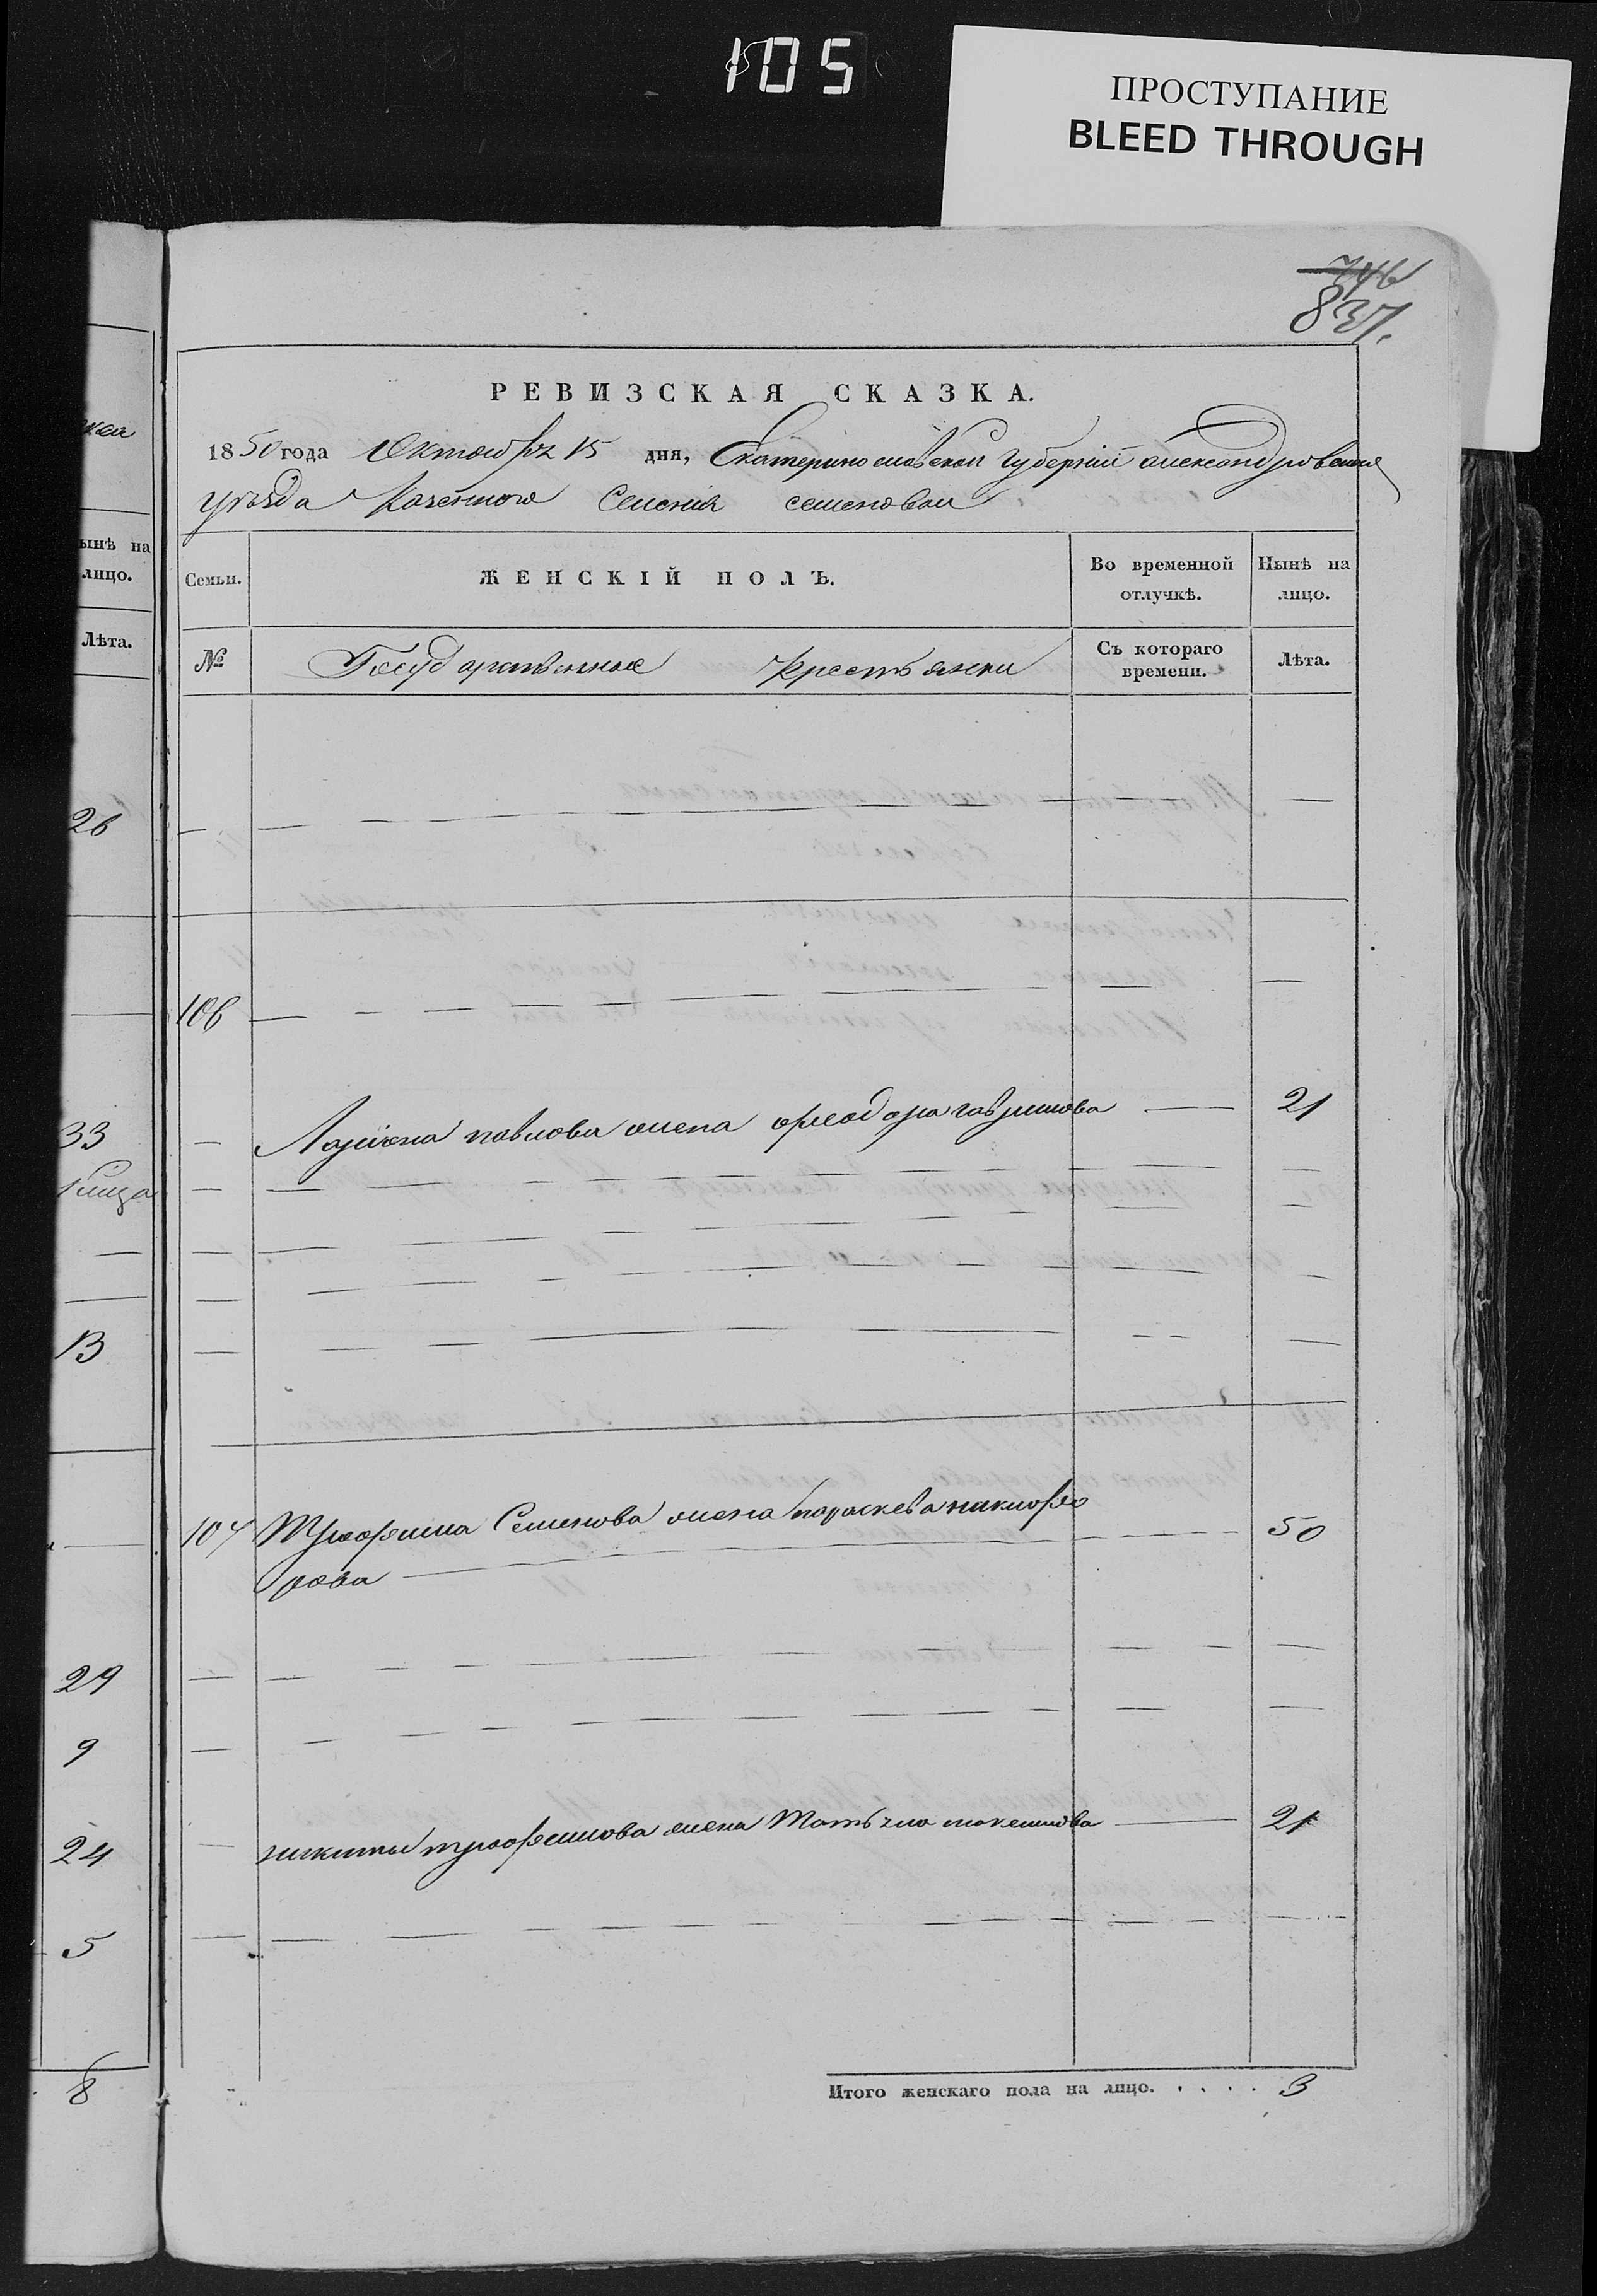 105
ПРОСТУПАНИЕ
BLEED THROUGH
746
837.
РЕВИЗСКАЯ СКАЗКА.
1850 года Октября 15 дня, Екатеринославской губернии александровскаго
уѣзда Казенного Селения семеновки
ынѣ на
лицо.
Семьи.
ЖЕНСКІЙ ПОЛЪ.
Во временной
отлучкѣ.
Нынѣ на
лицо.
Лѣта.
№
Государственные крестьянки
Съ котораго
времени.
Лѣта.
26
106
33
Павлова жена феодора гаврилова — 21
13
107 Трофима Семенова жена параскева никифо — 50
рова
29
9
24
никиты трофимова жена Татьяна — 21
5
8
Итого женскаго пола на лицо. . . . . 3